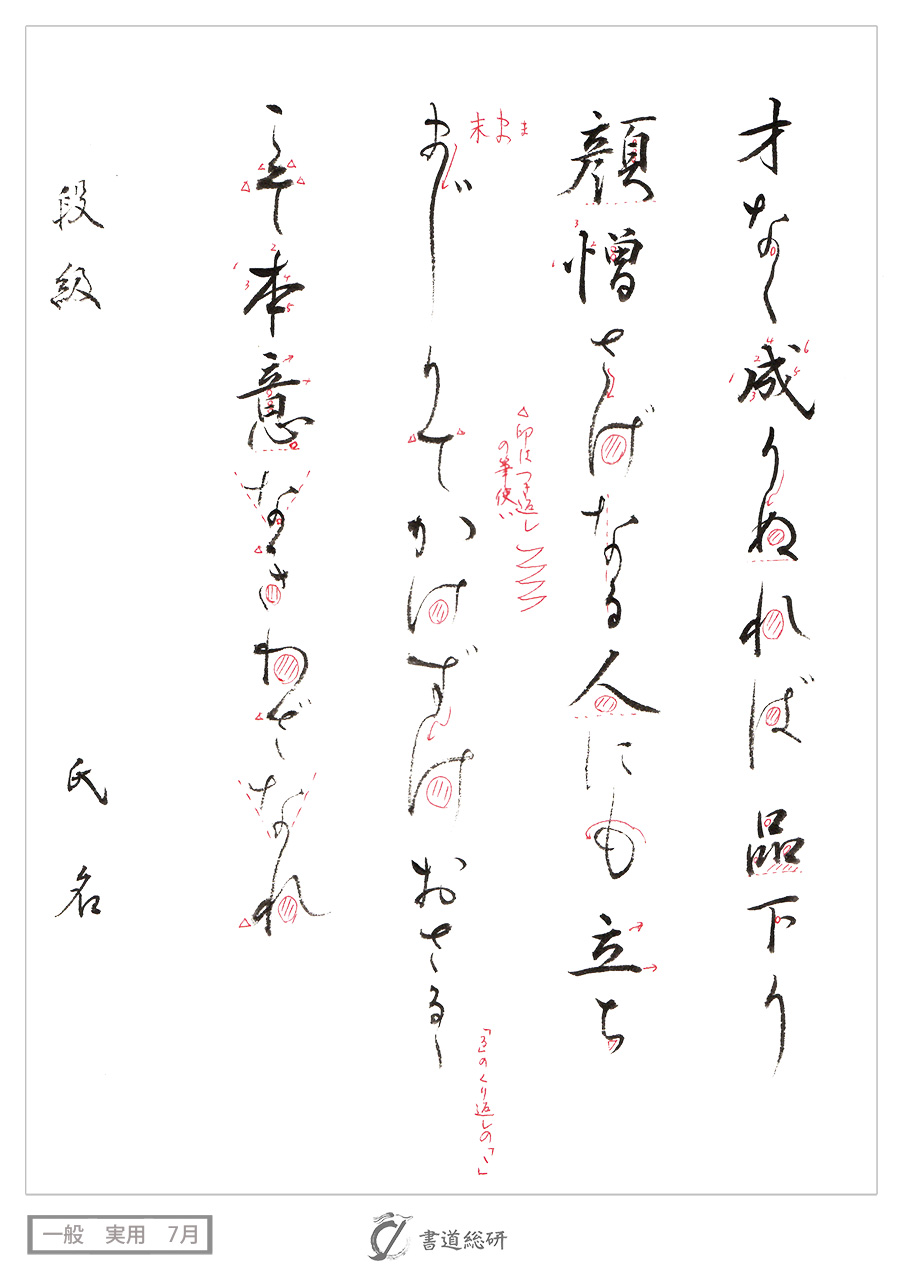 才なく成りぬれば品下り
顔憎さげなる人にも立ち
まじりてかけずけおさるゝ
こそ本意なきわざなれ
段級 氏名
末 ま ま
△印はつき返し
の筆使い
「る」のくり返しの「ゝ」
一般 実用 7月
書道総研